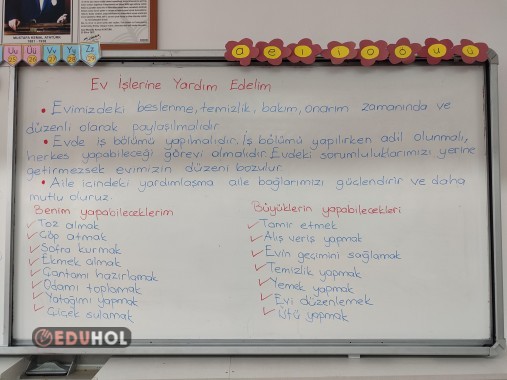 MUSTAFA KEMAL ATATÜRK
1881 - 1938
Uu Üü Vv Yy Zz
25 26 27 28 29
a e ı i o ö u ü
Ev İşlerine Yardım Edelim
• Evimizdeki beslenme, temizlik, bakım, onarım zamanında ve
düzenli olarak paylaşılmalıdır.
• Evde iş bölümü yapılmalıdır. İş bölümü yapılırken adil olunmalı,
herkes yapabileceği görevi almalıdır. Evdeki sorumluluklarımızı yerine
getirmezsek evimizin düzeni bozulur.
• Aile içindeki yardımlaşma aile bağlarımızı güçlendirir ve daha
mutlu oluruz.
Benim yapabileceklerim
✓ Toz almak
✓ Çöp atmak
✓ Sofra kurmak
✓ Ekmek almak
✓ Çantamı hazırlamak
✓ Odamı toplamak
✓ Yatağımı yapmak
✓ Çiçek sulamak
Büyüklerin yapabilecekleri
✓ Tamir etmek
✓ Alış veriş yapmak
✓ Evin geçimini sağlamak
✓ Temizlik yapmak
✓ Yemek yapmak
✓ Evi düzenlemek
✓ Ütü yapmak
EDUHOL